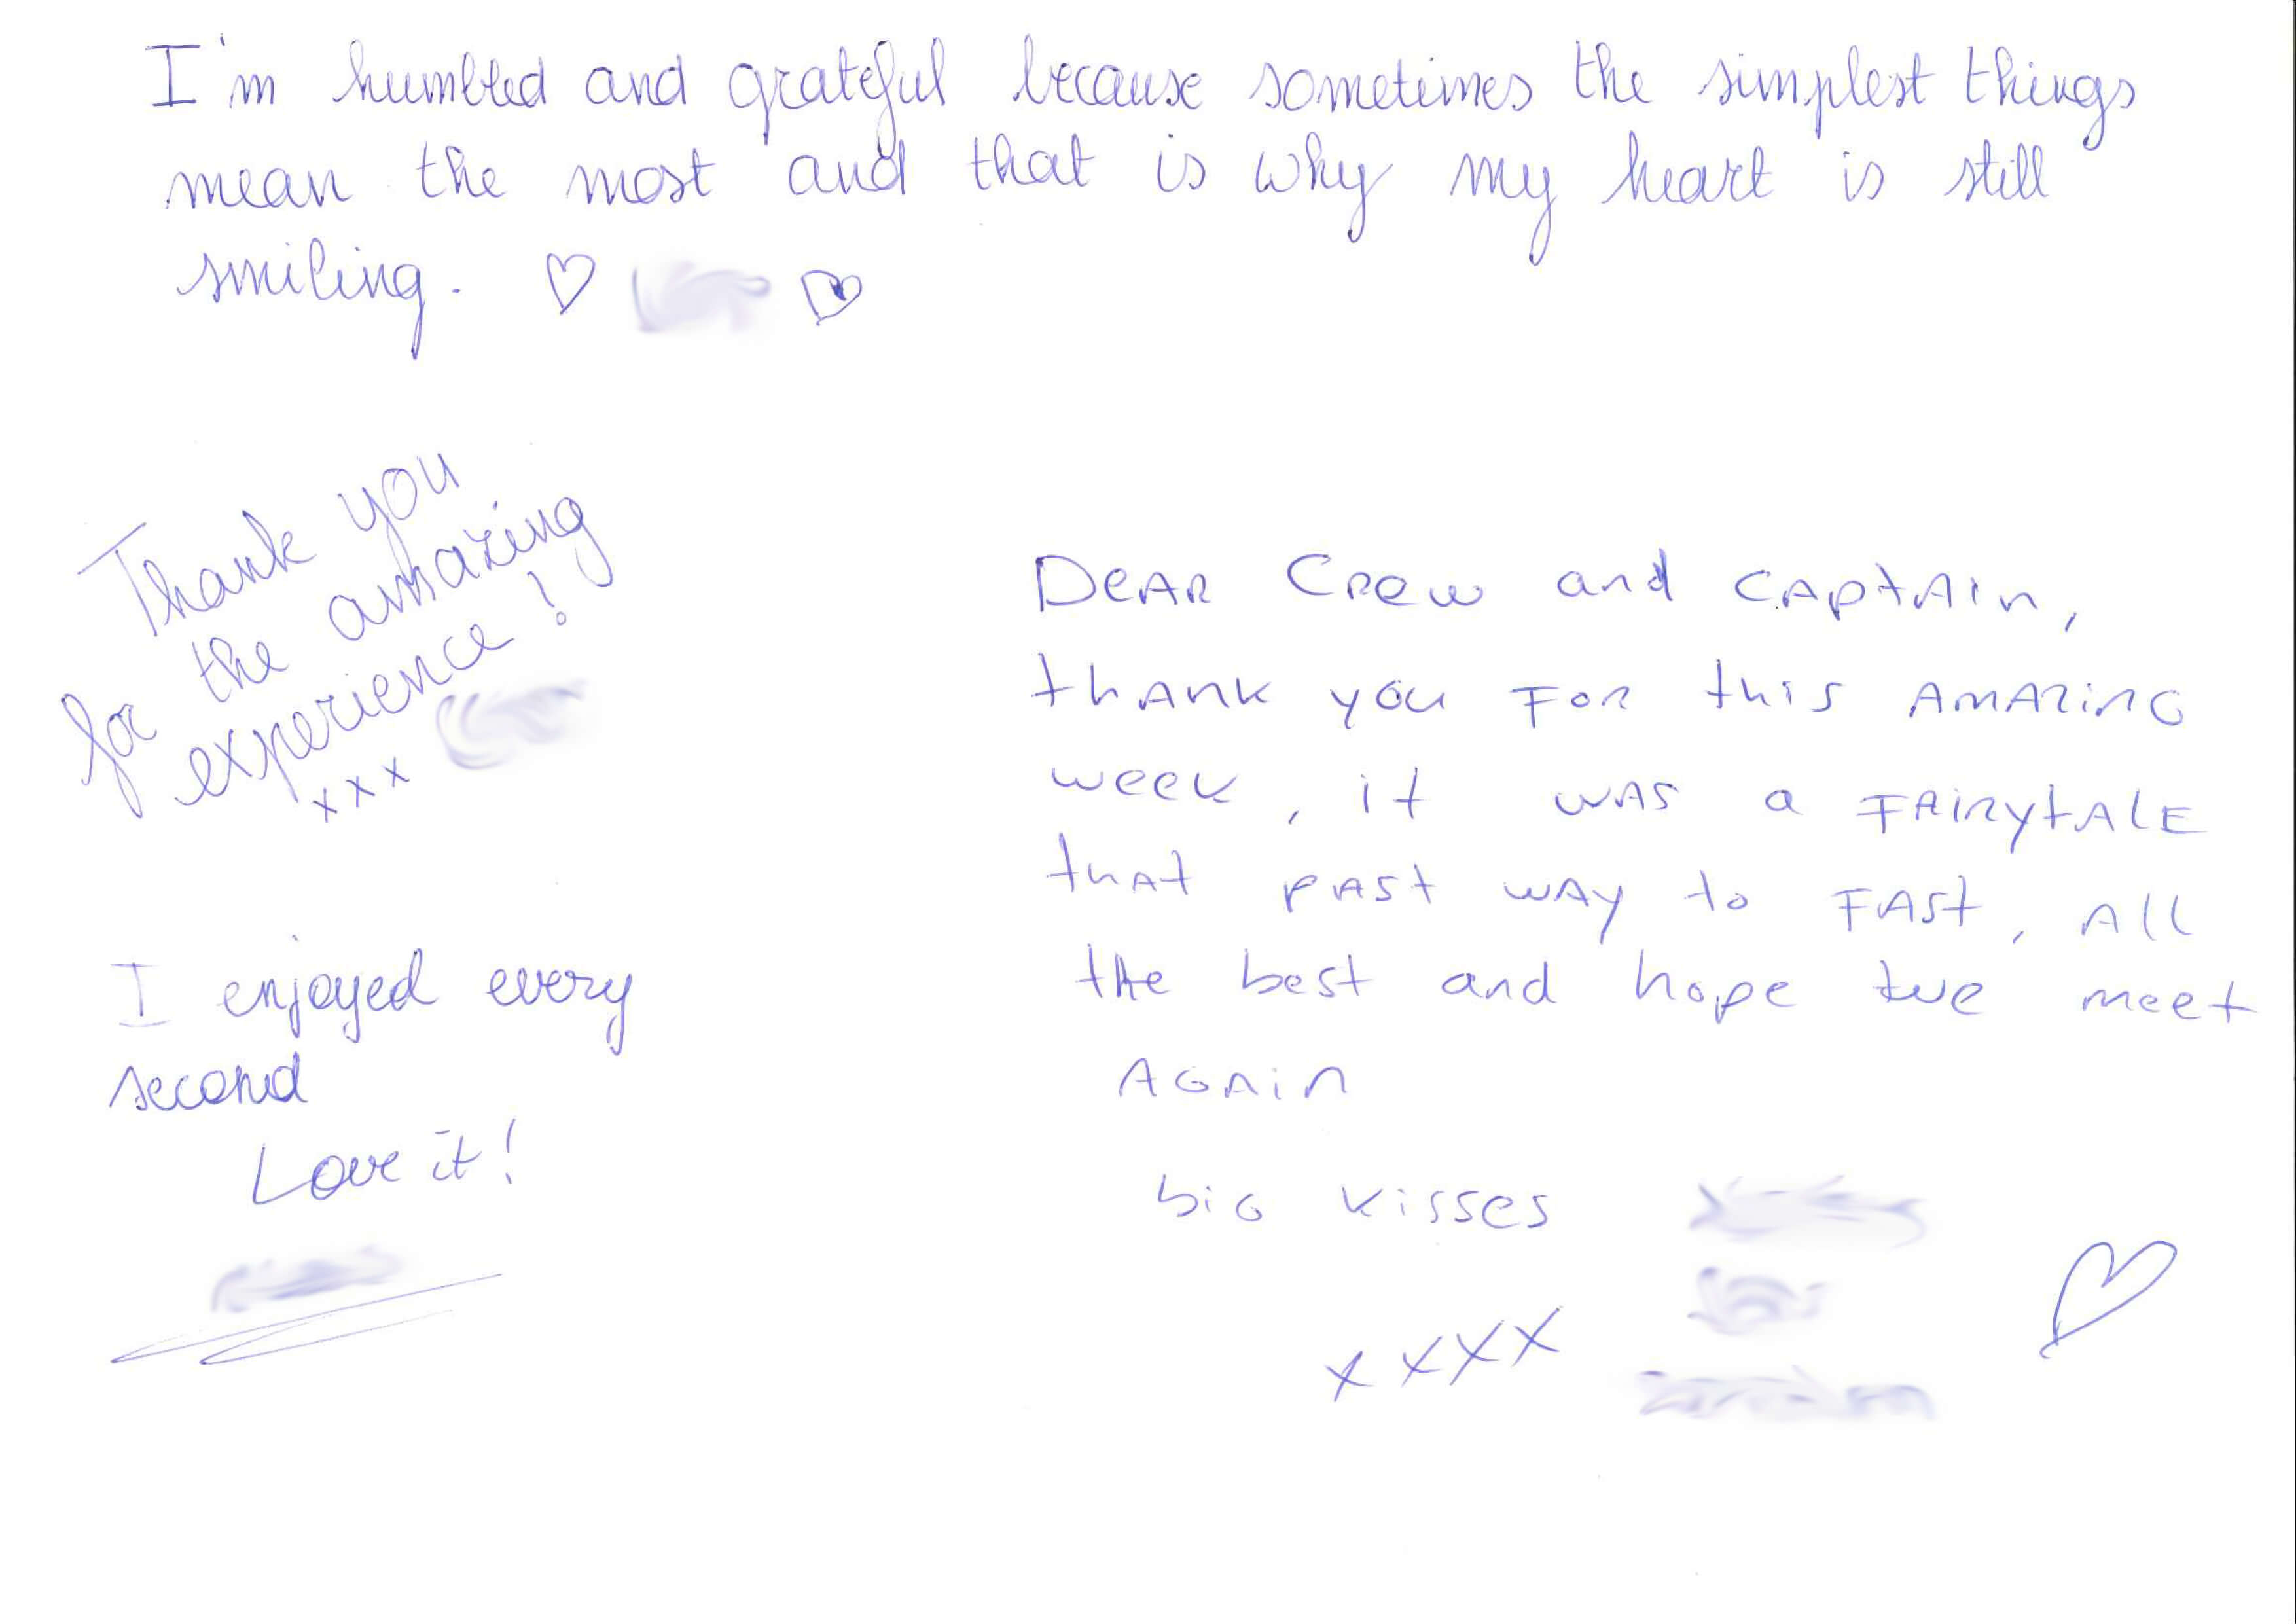 I'm humbled and grateful because sometimes the simplest things
mean the most and that is why my heart is still
smiling.
Thank you
for the amazing
experience!
xxx
I enjoyed every
second
Love it!
DeAR Crew and CAptAin,
thAnk you FOR this AMAZinG
week, it wAS a FAiRytALE
thAt pASt wAy to FASt, All
tHe best and hope we meet
AGAin
biG kisses
xxxx